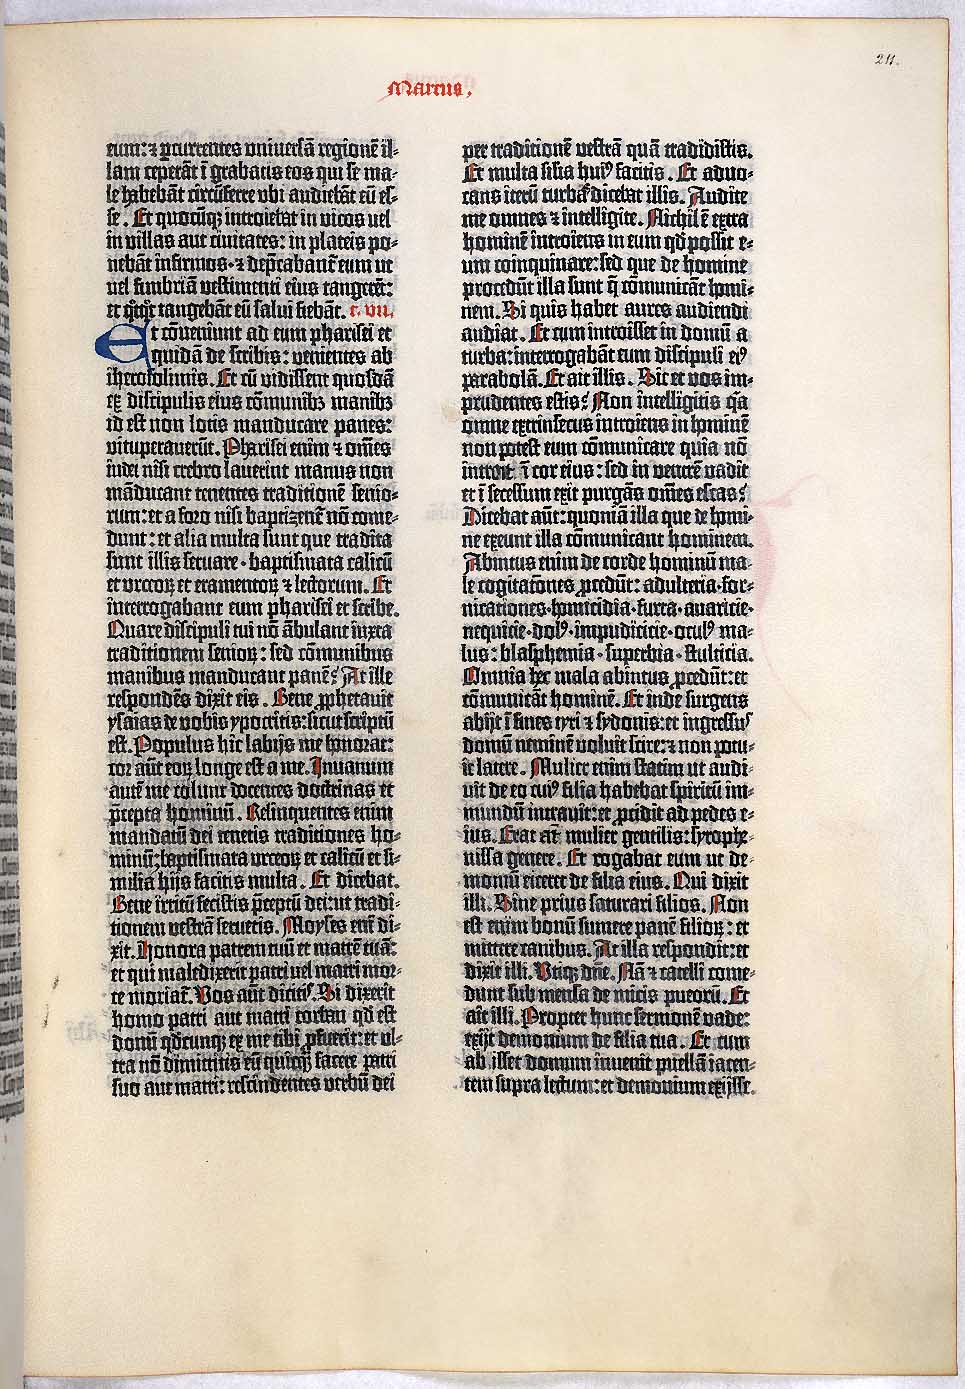 211.
Marcus.
eum: ⁊ ꝑcurrentes vniuersā regionē il-
lam ceperāt ī grabatis eos qui se ma-
le habebāt circūferre vbi audiebāt eū es-
se. Et quocūqꝫ introiebat in vicos uel
in villas aut ciuitates: in plateis po-
nebāt infirmos · ⁊ dep̄cabant᷑ eum ut
uel fimbriā vestimenti eius tangerēt:
et qͦtqͦt tangebāt eū salui fiebāt. c. vii.
Et cōueniunt ad eum pharisei et
quidā de scribis: venientes ab
iherosolimis. Et cū vidissent quosdā
ex discipulis eius cōmunibꝫ manibꝫ
id est non lotis manducare panes:
vituperauerūt. Pharisei enim ⁊ om̄es
iudei nisi crebro lauerint manus non
māducant tenentes traditionē senio-
rum: et a foro nisi baptizent᷑ nō come-
dunt: et alia multa sunt que tradita
sunt illis seruare · baptismata calicū
et vrceoꝝ et eramentoꝝ ⁊ lectorum. Et
interrogabant eum pharisei et scribe.
Quare discipuli tui nō ābulant iuxta
traditionem senioꝝ: sed cōmunibus
manibus manducant panē? At ille
respondēs dixit eis. Bene ꝓphetauit
ysaias de vobis ypocritis: sicut scriptū
est. Populus hic labijs me honorat:
cor aūt eoꝝ longe est a me. Inuanum
autē me colunt docentes doctrinas et
p̄cepta hominū. Relinquentes enim
mandatū dei tenetis traditiones ho-
minū: baptismata vrceoꝝ et calicū et si-
milia hijs facitis multa. Et dicebat.
Bene irritū fecistis p̄ceptū dei: ut tradi-
tionem vestrā seruetis. Moyses eni᷑ di-
xit. Honora patrem tuū et matrē tuā:
et qui maledixerit patri uel matri mor-
te moriat᷑. Vos aūt dicitis. Si dixerit
homo patri aut matri corban qd̄ est
donū qd̄cunqꝫ ex me tibi ꝓfuerit: et ul-
tra nō dimittitis eū quicqꝫ facere patri
suo aut matri: rescindentes verbū dei
per traditionē vestrā quā tradidistis.
Et multa silia huiꝰ facitis. Et aduo-
cans iterū turbā dicebat illis. Audite
me omnes ⁊ intelligite. Nichil ē extra
hominē introiens in eum qd̄ possit e-
um coinquinare: sed que de homine
procedūt illa sunt q̄ cōmunicāt homi-
nem. Si quis habet aures audiendi
audiat. Et cum introisset in domū a
turba: interrogabāt eum discipuli eiꝰ
parabolā. Et ait illis. Sic et vos im-
prudentes estis? Non intelligitis qͣa
omne extrinsecus introiens in hominē
non potest eum cōmunicare quia nō
introit ī cor eius: sed in ventrē vadit
et ī secessum exit purgās om̄es escas?
Dicebat aūt: quoniā illa que de homi-
ne exeunt illa cōmunicant hominem.
Abintus enim de corde hominū ma-
le cogitatōnes ꝓcedūt: adulteria · for-
nicationes · homicidia · furta · auaricie ·
nequicie · dolꝰ · impudicicie · oculꝰ ma-
lus: blasphemia · superbia · stulticia.
Omnia hec mala abintus ꝓcedūt: et
cōmunicāt hominē. Et inde surgens
abijt ī fines tyri ⁊ sydonis: et ingressus
domū neminē voluit scire: ⁊ non potu-
it latere. Mulier enim statim ut audi-
uit de eo cuiꝰ filia habebat spiritū im-
mundū intrauit: et ꝓcidit ad pedes e-
ius. Erat at᷑ mulier gentilis: syrophe-
nissa genere. Et rogabat eum ut de-
moniū eiceret de filia eius. Qui dixit
illi. Sine prius saturari filios. Non
est enim bonū sumere panē filioꝝ: et
mittere canibus. At illa respondit: et
dixit illi. Vtiqꝫ dn̄e. Nā ⁊ catelli come-
dunt sub mensa de micis puerorū. Et
ait illi. Propter hunc sermonē vade:
exijt demonium de filia tua. Et cum
ab isset domum inuenit puellā iacen-
tem supra lectum: et demonium exijsse.